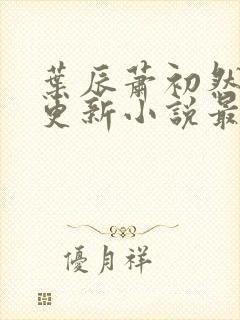 葉辰蕭初然
更新小說最
優月祥